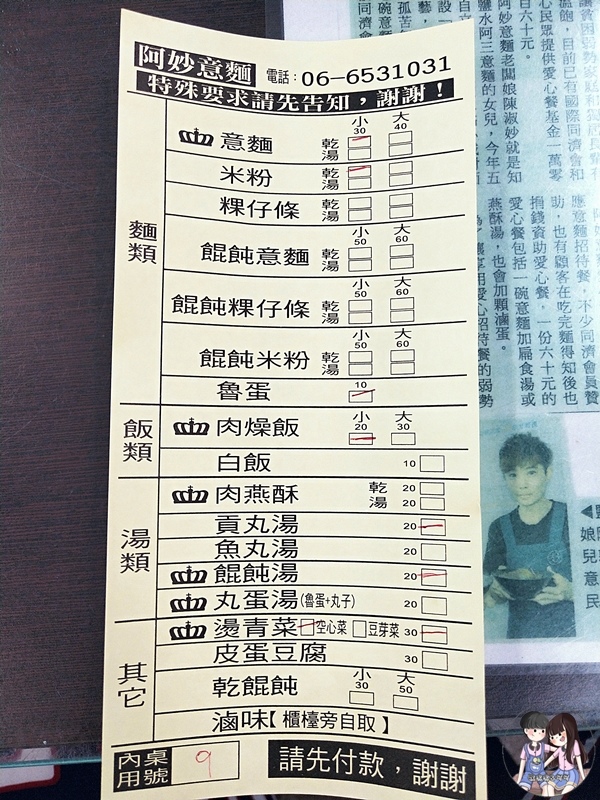 阿妙意麵 電話：06-6531031
特殊要求請先告知，謝謝！
麵類
小 30 大 40
意麵 乾 湯
米粉 乾 湯
粿仔條 乾 湯
小 50 大 60
餛飩意麵 乾 湯
小 50 大 60
餛飩粿仔條 乾 湯
小 50 大 60
餛飩米粉 乾 湯
魯蛋 10
飯類
肉燥飯 小 20 大 30
白飯 10
湯類
肉燕酥 乾 20 湯 20
貢丸湯 20
魚丸湯 20
餛飩湯 20
丸蛋湯(魯蛋+丸子) 20
其它
燙青菜 空心菜 豆芽菜 30
皮蛋豆腐 30
乾餛飩 小 30 大 50
滷味【櫃檯旁自取】
內用 桌號 9
請先付款，謝謝
溫飽，目前已有國際同濟會和
心民眾提供愛心餐基金一萬零
百六十元。
阿妙意麵老闆娘陳淑妙就是知
鹽水阿三意麵的女兒，今年五
應意麵招待餐，不少同濟會員贊
助，也有顧客在吃完麵得知後也
捐錢資助愛心餐，一份六十元的
愛心餐包括一碗意麵加扁食湯或
燕酥湯，也會加顆滷蛋。